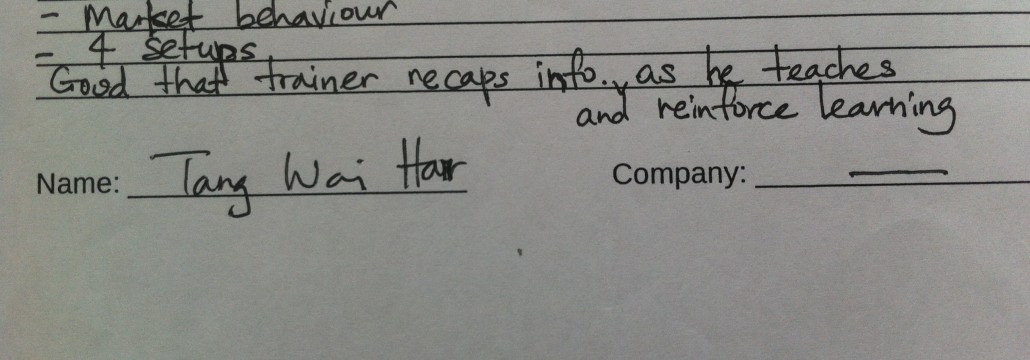 - Market behaviour
- 4 setups
Good that trainer recaps info.. as he teaches
and reinforce learning
Name: Tang Wai Har Company: —